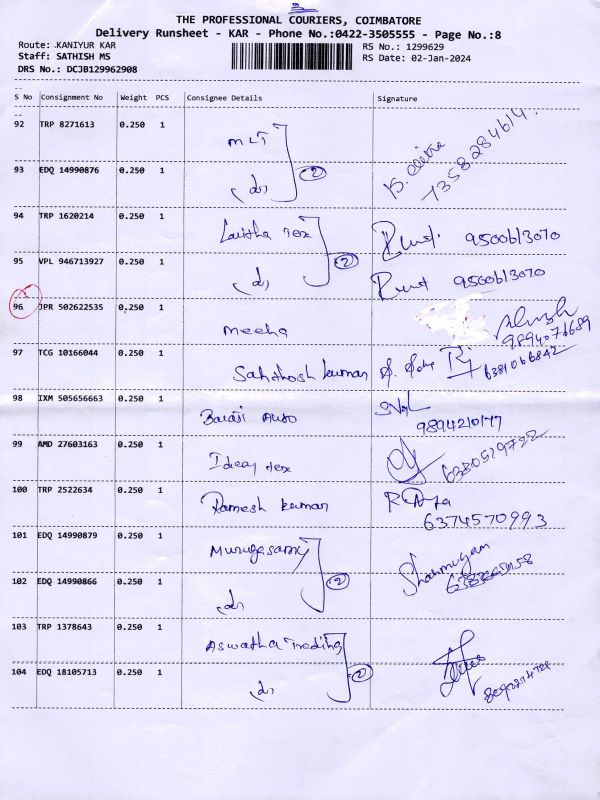 THE PROFESSIONAL COURIERS, COIMBATORE
Delivery Runsheet - KAR - Phone No.:0422-3505555 - Page No.:8
Route: KANIYUR KAR RS No.: 1299629
Staff: SATHISH MS RS Date: 02-Jan-2024
DRS No.: DCJB129962908
S No Consignment No Weight PCS Consignee Details Signature
92 TRP 8271613 0.250 1 MLT 7358284614
93 EDQ 14990876 0.250 1 (do) (2)
94 TRP 1620214 0.250 1 Lalitha Tex 9500613070
95 VPL 946713927 0.250 1 (do) (2) 9500613070
96 JPR 502622535 0.250 1 Meeha
97 TCG 10166044 0.250 1 Sahthosh kumar
98 IXM 505656663 0.250 1 Balaji Auto
99 AMD 27603163 0.250 1 Ideas Tex
100 TRP 2522634 0.250 1 Ramesh kumar 6374570993
101 EDQ 14990879 0.250 1 Murugasamy Shanmugam
102 EDQ 14990866 0.250 1 (do) (2)
103 TRP 1378643 0.250 1 Aswatha Trading
104 EDQ 18105713 0.250 1 (do) (2)